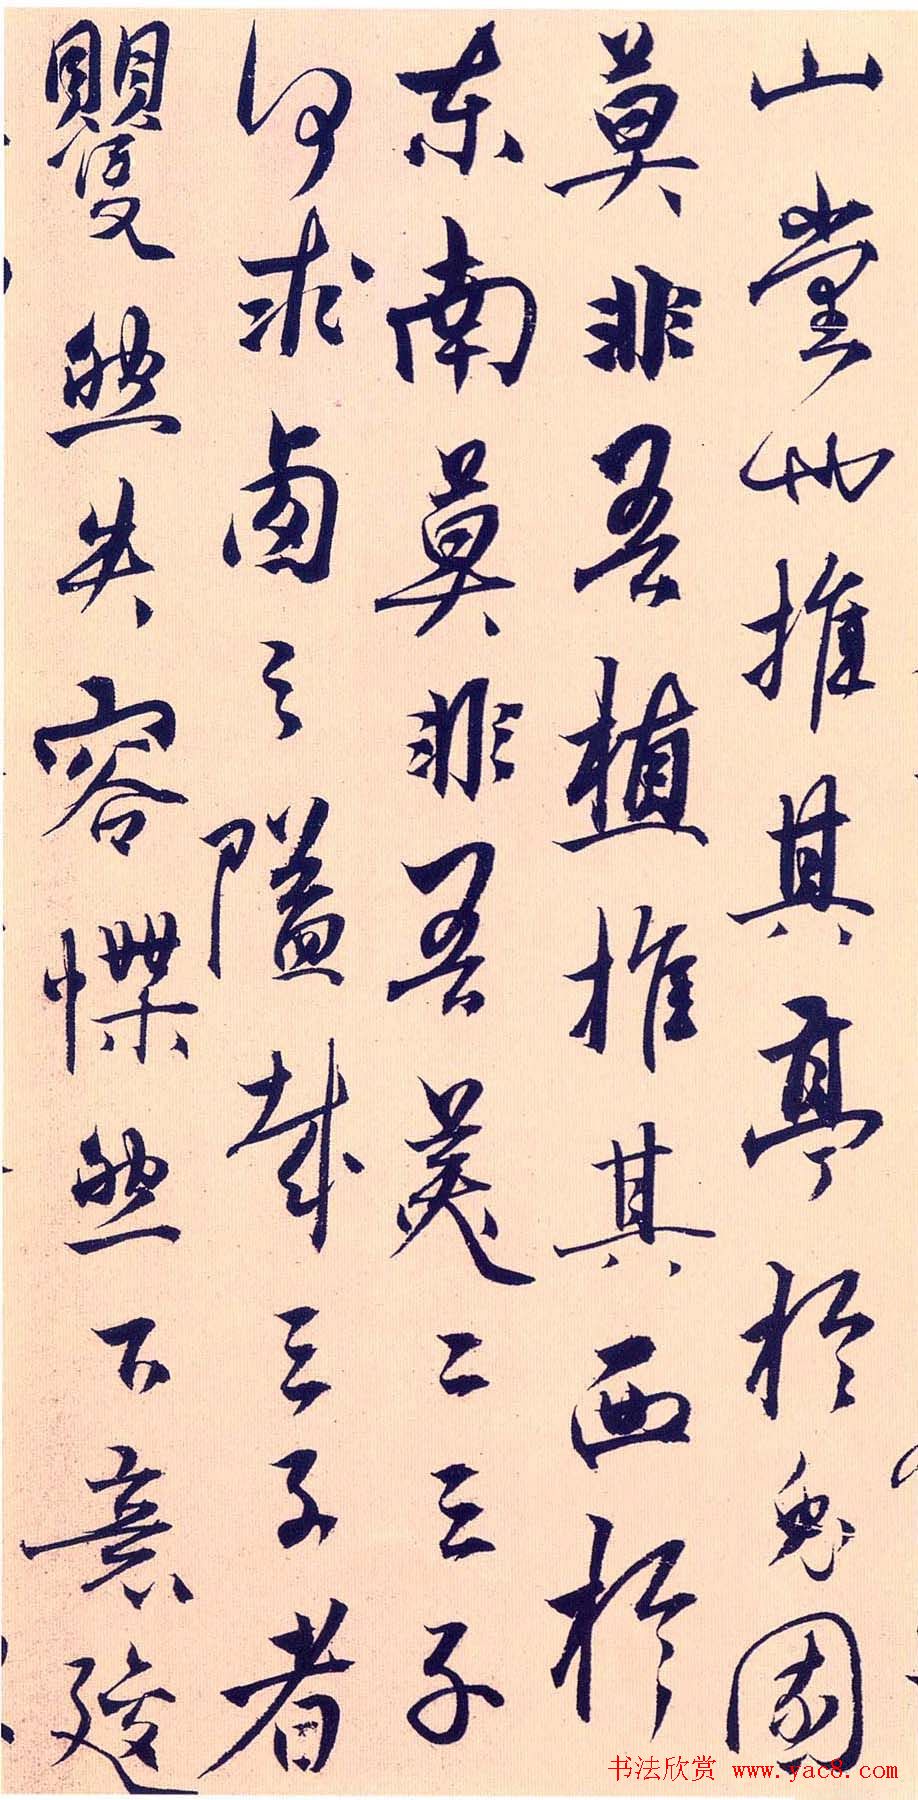 山堂也推其亭於兔園
莫非吾植推其西於
東南莫非吾二三子
何求鹵之隘哉三子者
矍然失容惵然下意逡
书法欣赏 www.yac8.com